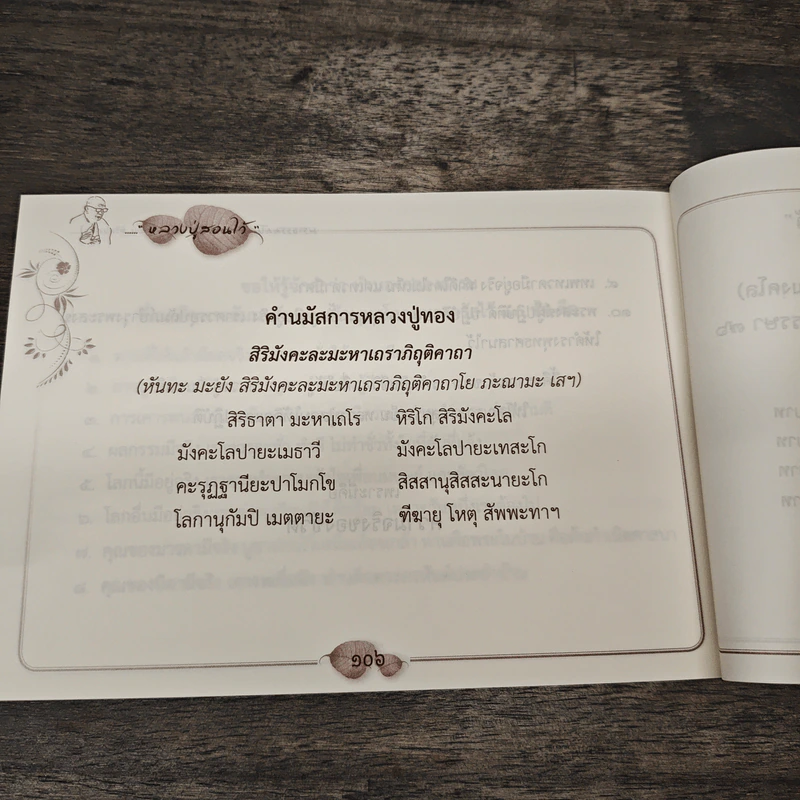 "หลวงปู่สอนไว้"
คำนมัสการหลวงปู่ทอง
สิริมังคะละมะหาเถราภิถุติคาถา
(หันทะ มะยัง สิริมังคะละมะหาเถราภิถุติคาถาโย ภะณามะ เสฯ)
สิริธาตา มะหาเถโร หิริโก สิริมังคะโล
มังคะโลปายะเมธาวี มังคะโลปายะเทสะโก
คะรุฏฐานียะปาโมกโข สิสสานุสิสสะนายะโก
โลกานุกัมปิ เมตตายะ ฑีฆายุ โหตุ สัพพะทาฯ
๑๐๖